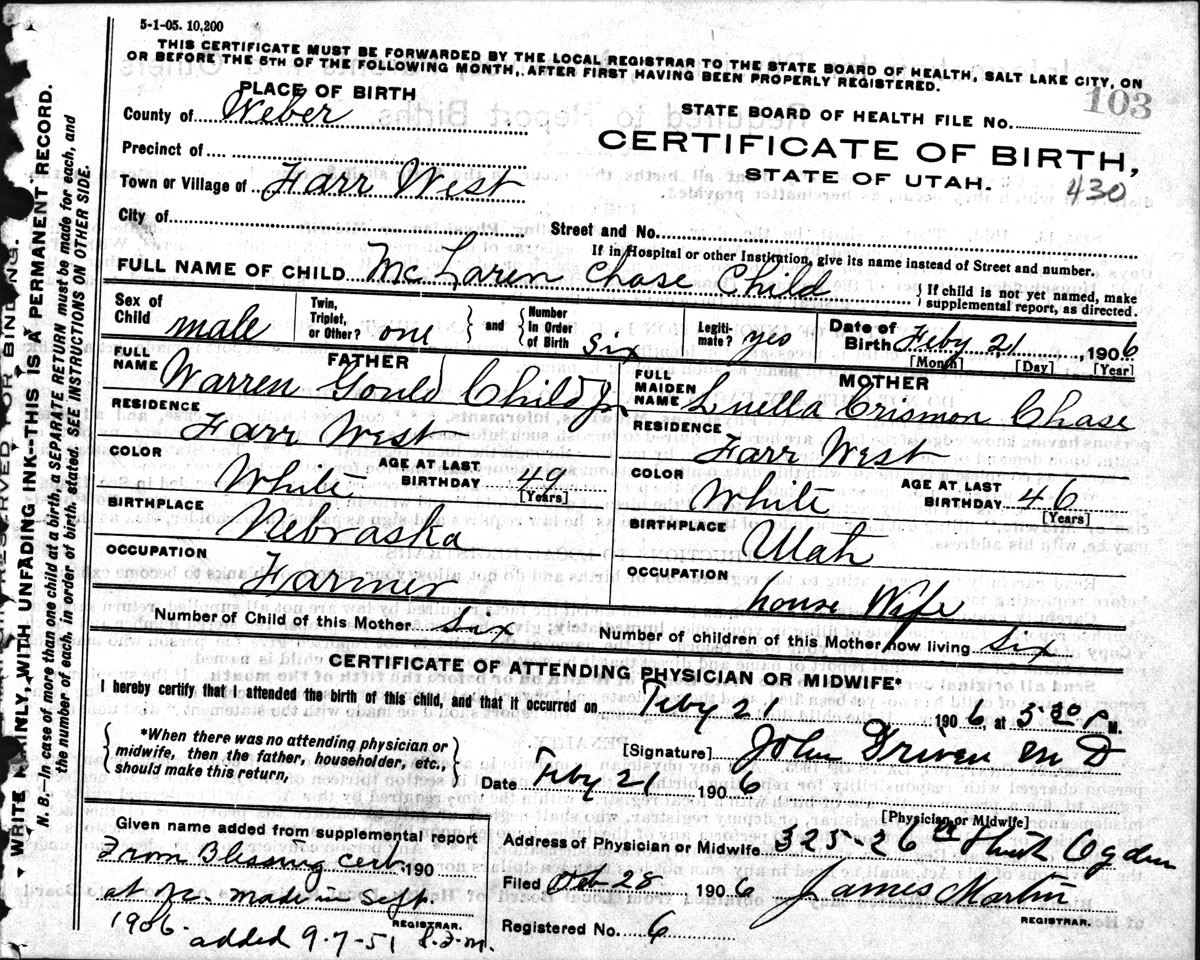 5-1-05. 10,200
THIS CERTIFICATE MUST BE FORWARDED BY THE LOCAL REGISTRAR TO THE STATE BOARD OF HEALTH, SALT LAKE CITY, ON
OR BEFORE THE 5TH OF THE FOLLOWING MONTH, AFTER FIRST HAVING BEEN PROPERLY REGISTERED.
103
PLACE OF BIRTH
STATE BOARD OF HEALTH FILE NO.
County of Weber
CERTIFICATE OF BIRTH,
STATE OF UTAH.
430
Precinct of
Town or Village of Farr West
City of
Street and No.
If in Hospital or other Institution, give its name instead of Street and number.
FULL NAME OF CHILD McLaren Chase Child } If child is not yet named, make supplemental report, as directed.
Sex of Child male Twin, Triplet, or Other? one } and { Number in Order of Birth six Legiti-mate? yes Date of Birth Feby 21, 1906
[Month] [Day] [Year]
FATHER
MOTHER
FULL NAME Warren Gould Child Jr
FULL MAIDEN NAME Luella Crismon Chase
RESIDENCE Farr West
RESIDENCE Farr West
COLOR White AGE AT LAST BIRTHDAY 49 [Years]
COLOR White AGE AT LAST BIRTHDAY 46 [Years]
BIRTHPLACE Nebraska
BIRTHPLACE Utah
OCCUPATION Farmer
OCCUPATION house Wife
Number of Child of this Mother six
Number of children of this Mother now living six
CERTIFICATE OF ATTENDING PHYSICIAN OR MIDWIFE*
I hereby certify that I attended the birth of this child, and that it occurred on Feby 21 1906, at 3 30 P M.
{ *When there was no attending physician or midwife, then the father, householder, etc., should make this return, }
[Signature] John Driver M D
Date Feby 21 1906
[Physician or Midwife]
Given name added from supplemental report
From Blessing cert. 190
at o.c. made in Sept.
1906.
REGISTRAR.
added 9-7-51
Address of Physician or Midwife 325-26th Ogden
Filed Feb 28 1906 James Martin
REGISTRAR.
Registered No. 6
MARGIN RESERVED FOR BINDING.
WRITE PLAINLY, WITH UNFADING INK--THIS IS A PERMANENT RECORD.
N. B.—In case of more than one child at a birth, a SEPARATE RETURN must be made for each, and
the number of each, in order of birth, stated. SEE INSTRUCTIONS ON OTHER SIDE.